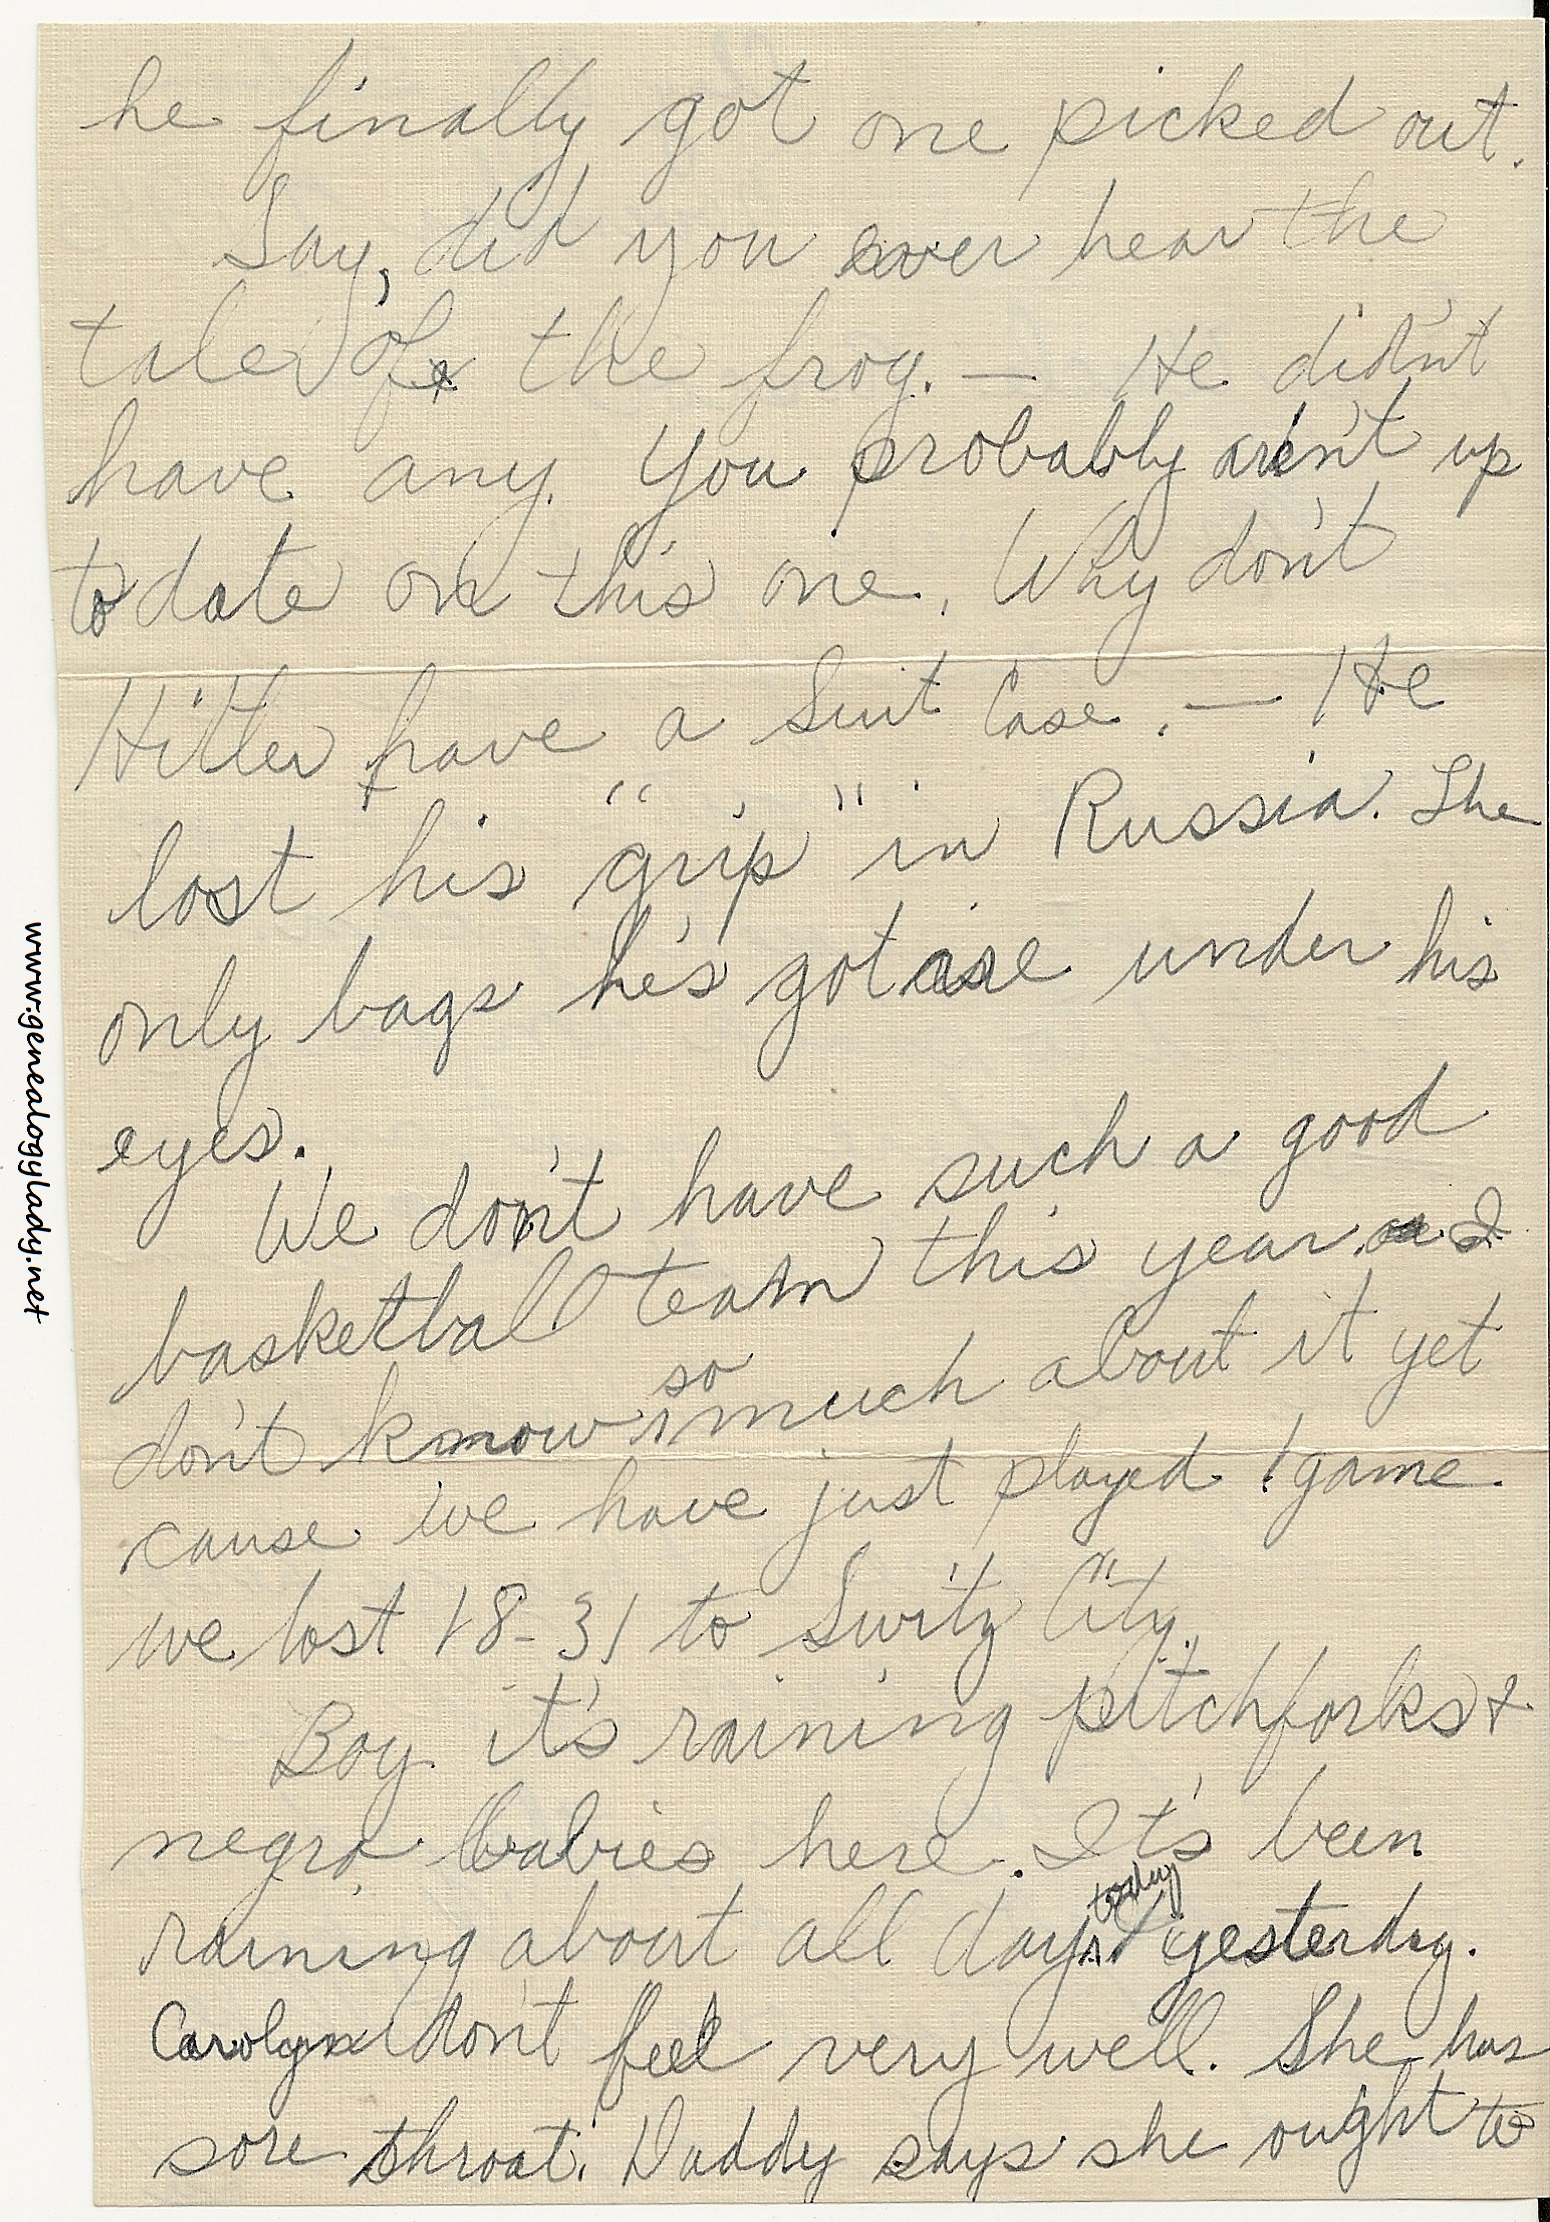 he finally got one picked out.
Say, did you ever hear the
tale of the frog. — He didn't
have any. You probably aren't up
to date on this one. Why don't
Hitler have a Suit Case. — He
lost his "grip" in Russia. The
only bags he's got are under his
eyes.
We don't have such a good
basketball team this year. I
don't know so much about it yet
cause we have just played 1 game.
we lost 18-31 to Switz City.
Boy it's raining pitchforks &
negro babies here. It's been
raining about all day today & yesterday.
Carolyn don't feel very well. She has
sore throat. Daddy says she ought to
www.genealogylady.net